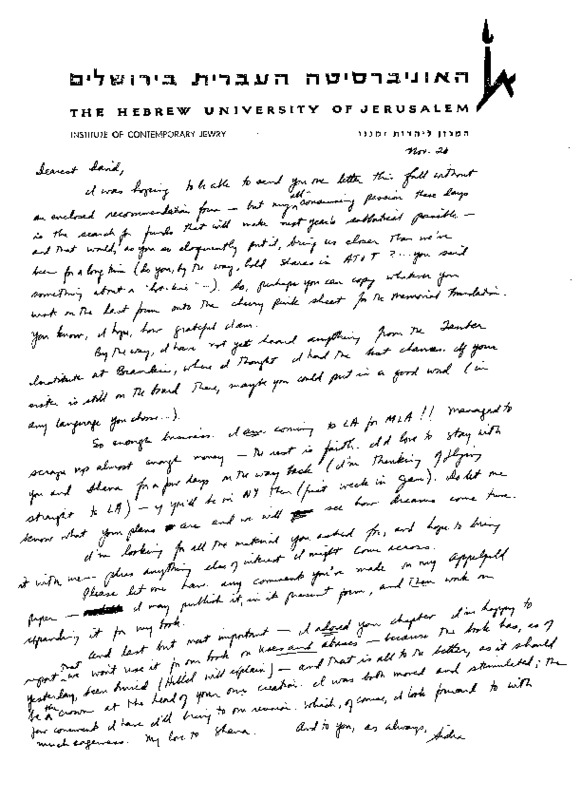 האוניברסיטה העברית בירושלים
THE HEBREW UNIVERSITY OF JERUSALEM
INSTITUTE OF CONTEMPORARY JEWRY המכון ליהדות זמננו
Nov. 20
Dearest David,
I was hoping to be able to send you one letter this fall without
an enclosed recommendation form – but my all-consuming passion these days
is the search for funds that will make next year's sabbatical possible –
and that would, as you so eloquently put it, bring us closer than we've
been for a long time (do you, by the way, hold shares in AT&T?... you said
something about a ...). So, perhaps you can copy whatever you
wrote on the last form onto the cherry pink sheet for the Memorial Foundation.
You know, I hope, how grateful I am.
By the way, I have not yet heard anything from the Tauber
Institute at Brandeis, where I thought I had the best chances. If your
sister is still on the board there, maybe you could put in a good word (in
any language you choose...).
So enough business. I am coming to LA for MLA!! Managed to
scrape up almost enough money – the rest is faith. I'd love to stay with
you and Shana for a few days on the way back (I'm thinking of flying
straight to LA) – if you'll be in NY then (first week in Jan). Do let me
know what your plans are and we will see how dreams come true.
I'm looking for all the material you asked for, and hope to bring
it with me – plus anything else of interest I might come across.
Please let me have any comments you've made on my Appelfeld
paper – I may publish it, in its present form, and then work on
expanding it for my book.
And last but most important – I adored your chapter. I'm happy to
report that we won't use it for our book on uses and abuses – because the book has, as of
yesterday, been buried (Hillel will explain) – and that is all to the better, as it should
be the crown at the head of your own creation. I was both moved and stimulated; the
few comments I have I'll bring to our reunion. Which, of course, I look forward to with
much eagerness. My love to Shana. And to you, as always,
Sidra